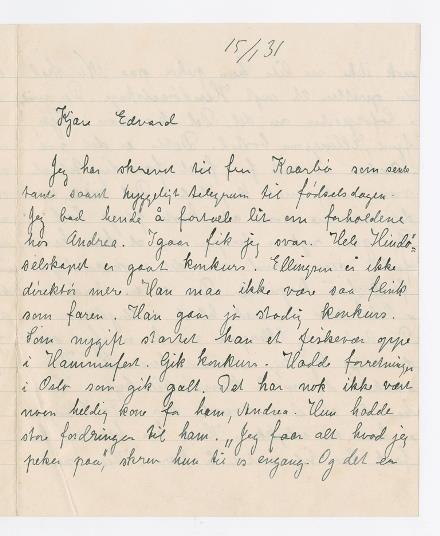 15/1 31
Kjære Edvard
Jeg har skrevet til fru Kaarbø som sendte
tante saant hyggeligt telegram til fødselsdagen.
Jeg bad hende å fortælle lit om forholdene
hos Andrea. Igaar fik jeg svar. Hele Hindø-
selskapet er gaat konkurs. Ellingsen er ikke
direktør mere. Han maa ikke være saa flink
som faren. Han gaar jo stadig konkurs.
Som nygift startet han et fiskevær oppe
i Hammerfest. Gik konkurs. Hadde forretninger
i Oslo som gik galt. Det har nok ikke vært
noen heldig kone for ham, Andrea. Hun hadde
store fordringer til ham. „Jeg faar alt hvad jeg
peker paa", skrev hun til os engang. Og det er